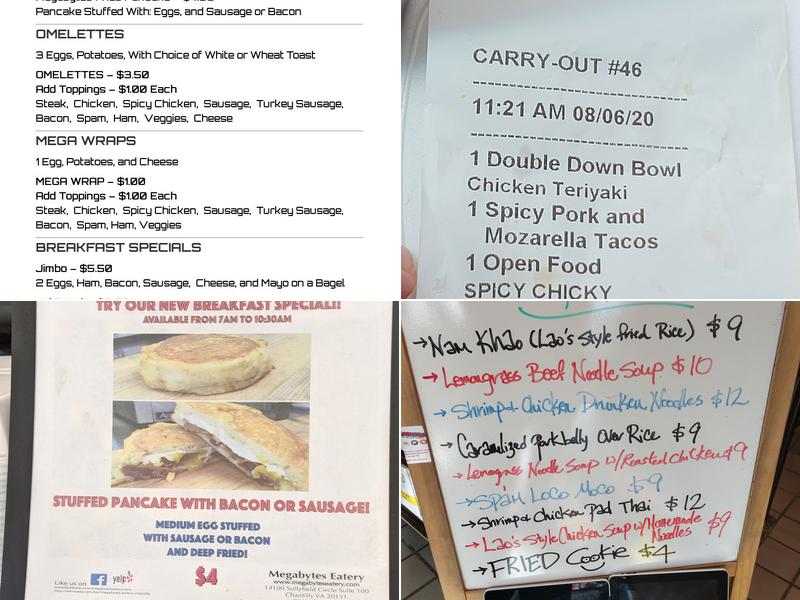 Pancake Stuffed With: Eggs, and Sausage or Bacon
OMELETTES
3 Eggs, Potatoes, With Choice of White or Wheat Toast
OMELETTES – $3.50
Add Toppings – $1.00 Each
Steak, Chicken, Spicy Chicken, Sausage, Turkey Sausage,
Bacon, Spam, Ham, Veggies, Cheese
MEGA WRAPS
1 Egg, Potatoes, and Cheese
MEGA WRAP – $1.00
Add Toppings – $1.00 Each
Steak, Chicken, Spicy Chicken, Sausage, Turkey Sausage,
Bacon, Spam, Ham, Veggies
BREAKFAST SPECIALS
Jimbo – $5.50
2 Eggs, Ham, Bacon, Sausage, Cheese, and Mayo on a Bagel
CARRY-OUT #46
11:21 AM 08/06/20
1 Double Down Bowl
Chicken Teriyaki
1 Spicy Pork and
Mozarella Tacos
1 Open Food
SPICY CHICKY
TRY OUR NEW BREAKFAST SPECIAL!!
AVAILABLE FROM 7AM TO 10:30AM
STUFFED PANCAKE WITH BACON OR SAUSAGE!
MEDIUM EGG STUFFED
WITH SAUSAGE OR BACON
AND DEEP FRIED!
Like us on f yelp
$4
Megabytes Eatery
www.megabyteseatery.com
14100 Sullyfield Circle Suite 100
Chantilly VA 20151
→Nam Khao (Lao's Style fried Rice) $9
→Lemongrass Beef Noodle Soup $10
→Shrimp & Chicken Drunken Noodles $12
→Caramelized Porkbelly Over Rice $9
→Lemongrass Noodle Soup w/Roasted Chicken $9
→SPAM LOCO MOCO $9
→Shrimp & Chicken Pad Thai $12
→Lao's Style Chicken Soup w/Homemade Noodles $9
→FRIED Cookie $4